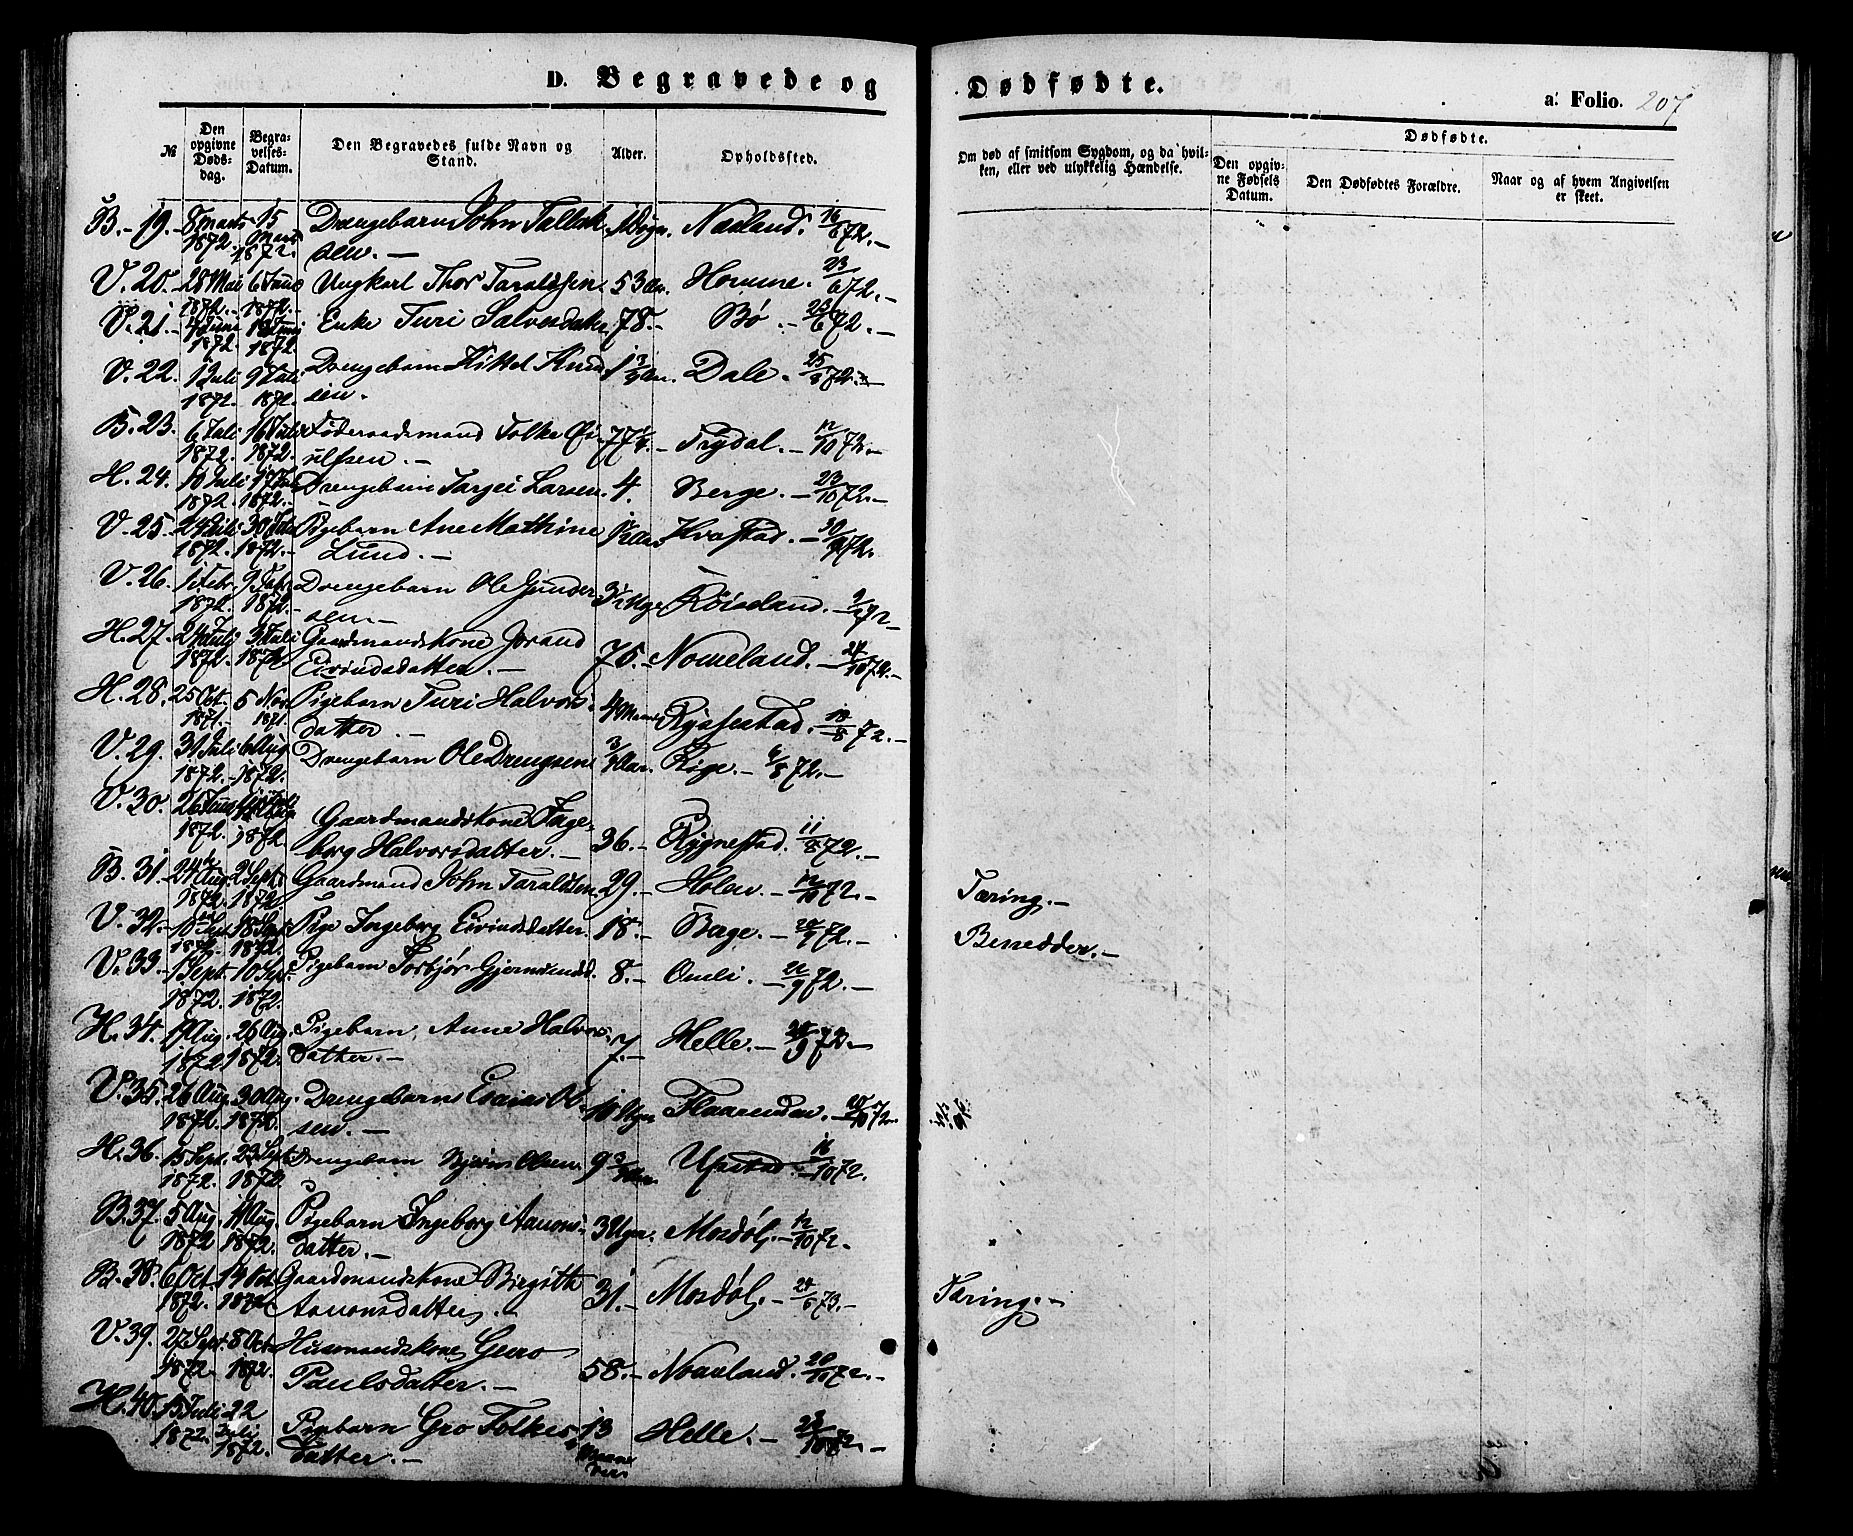 D. Begravede og Dødfødte.
a. Folio. 207
№
Den opgivne Døds-dag.
Begra-velses-Datum.
Den Begravedes fulde Navn og Stand.
Alder.
Opholdssted.
Om død af smitsom Sygdom, og da hvil-
ken, eller ved ulykkelig Hændelse.
Dødfødte.
Den opgiv-ne Fødsels Datum.
Den Dødfødtes Forældre.
Naar og af hvem Angivelsen er skeet.
B. 19. 8 Marts 15 Drengebarn John Tallak- 1 Døgn. Naaland. 16/6 72.
1872. Marts 1872. sen.
V. 20. 28 Mai 6 Juni Ungkarl Thor Taraldsen 53 Aar. Homme. 23/6 72.
1872. 1872.
V. 21. 4 Juni 12 Juni Enke Turi Salvesdatter 78. Bø. 23/6 72.
1872. 1872.
V. 22. 1 Juli 9 Juli Drengebarn Kittel Knud- 1 3/4 Aar. Dale. 72.
1872. 1872. sen.
B. 23. 6 Juli 16 Juli Føderaadsmand Folke 77 Trydal. 12/10 72.
1872. 1872. ulfsen.
H. 24. 10 Juli 17 Drengebarn Targei Larsen 4. Berge. 23/10 72.
1872. 1872.
V. 25. 24 Juli 30 Juli Pigebarn Ane Mathine Hvestad. 72.
1872. 1872. Lund.
V. 26. 1 Febr. 9 Febr. Drengebarn Ole Gunder- 3 1/2 Uge Røiseland. 72
1872. 1872. sen.
H. 27. 24 Juli Juli Gaardmandskone Jorand 75. Nomeland. 72.
1872. 1872 Eivindsdatter.
H. 28. 25 Oct. 5 Nov. Pigebarn Turi Halvors- 4 Maaneder Ryssestad. 18/8 72.
1871. 1871. datter.
V. 29. 31 Juli 6 Aug. Drengebarn Ole Drengsen 3/4 Aar. Rige. 6/8 72.
1872. 1872.
V. 30. 26 Juni
1872. 1872. Gaardmandskone Inge- 36. Rygnestad. 11/8 72.
borg Halvorsdatter.
B. 31. 24 Aug. 2 Sept. Gaardmand John Taraldsen 29. Holen. 12/10 72. Tæring.
1872. 1872
V. 32. 10 Sept. 18 Sept. Pige Ingeborg Eivindsdatter. 18. Bage. 72. Benedder.
1872. 1872.
V. 33. 1 Sept. 10 Sept. Pigebarn Torbjør Gjermundsd. 8. Omli. 22/9 72.
1872. 1872.
H. 34. 19 Aug. 26 Aug. Pigebarn Anne Halvors- 7. Helle. 72.
1872 1872. datter.
V. 35. 26 Aug. 30 Aug. Drengebarn Esaias Ol- 10 Uger Flaarendan. 72.
1872. 1872. sen.
H. 36. 15 Sept. 23 Sept. Drengebarn Bjørn Olsen. 9 3/4 Aar. Upstad. 16/10 72.
1872. 1872.
B. 37. 5 Aug. 11 Aug. Pigebarn Ingeborg Aanons- 3 Uger. Mosdøl. 12/10 72.
1872 1872. datter.
B. 38. 6 Oct. 14 Oct. Gaardmandskone Birgith 31. Mosdøl. 24/6 73. Tæring.
1872. 1872 Aanonsdatter.
V. 39. 27 Sept. 8 Oct. Husmandskone Guro 58. Noaaland. 20/10 72.
1872. 1872. Paulsdatter.
H. 40. 15 Juli 22 Pigebarn Gro Folkes- 13 Helle. 23/10 72.
1872. Juli 1872. datter. Maane-
der